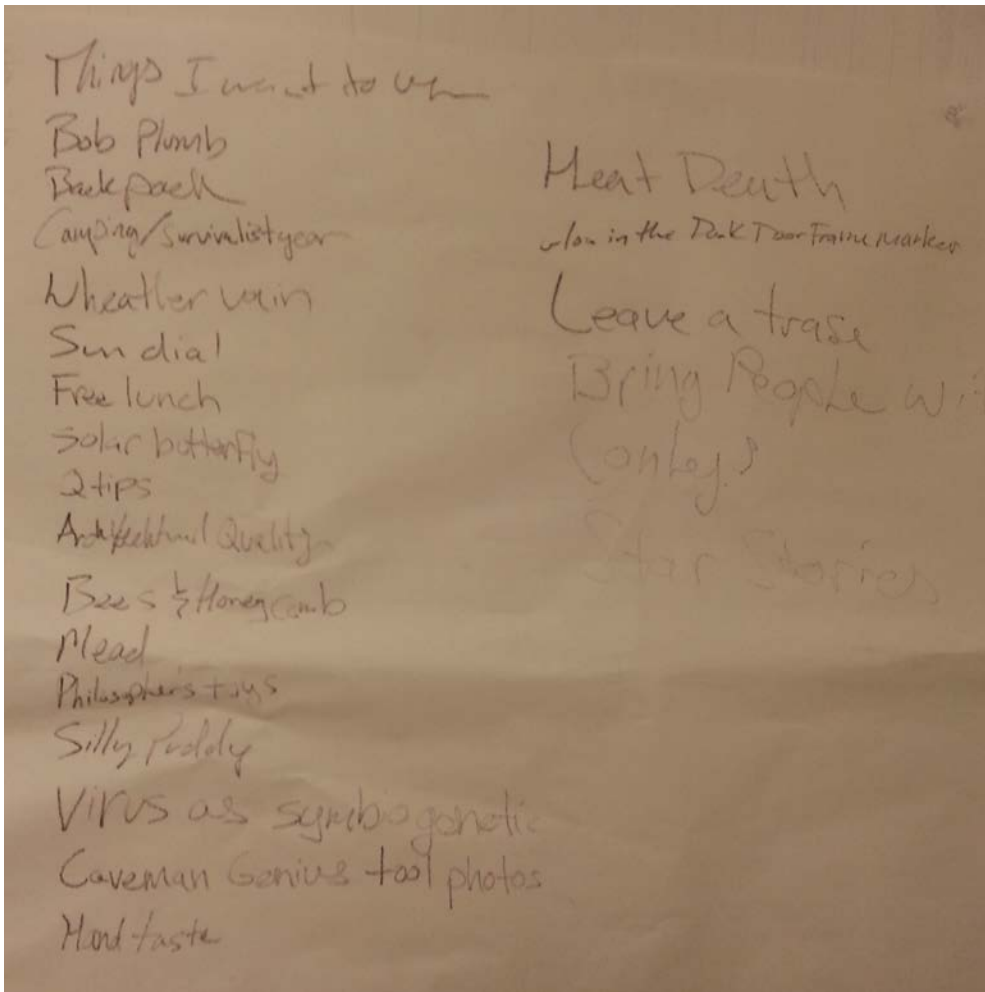 Things I want to
Bob Plumb
Backpack
Camping/Survivalist gear
Wheather vain
Sun dial
Free lunch
Solar butterfly
Q tips
Quality
Bees & Honeycomb
Mead
Philosopher's toys
Silly Puddy
Virus as symbiogenetic
Caveman Genius tool photos
taste
Heat Death
Glow in the Dark Door Frame marker
Leave a trase
Bring People Wi
Star Stories